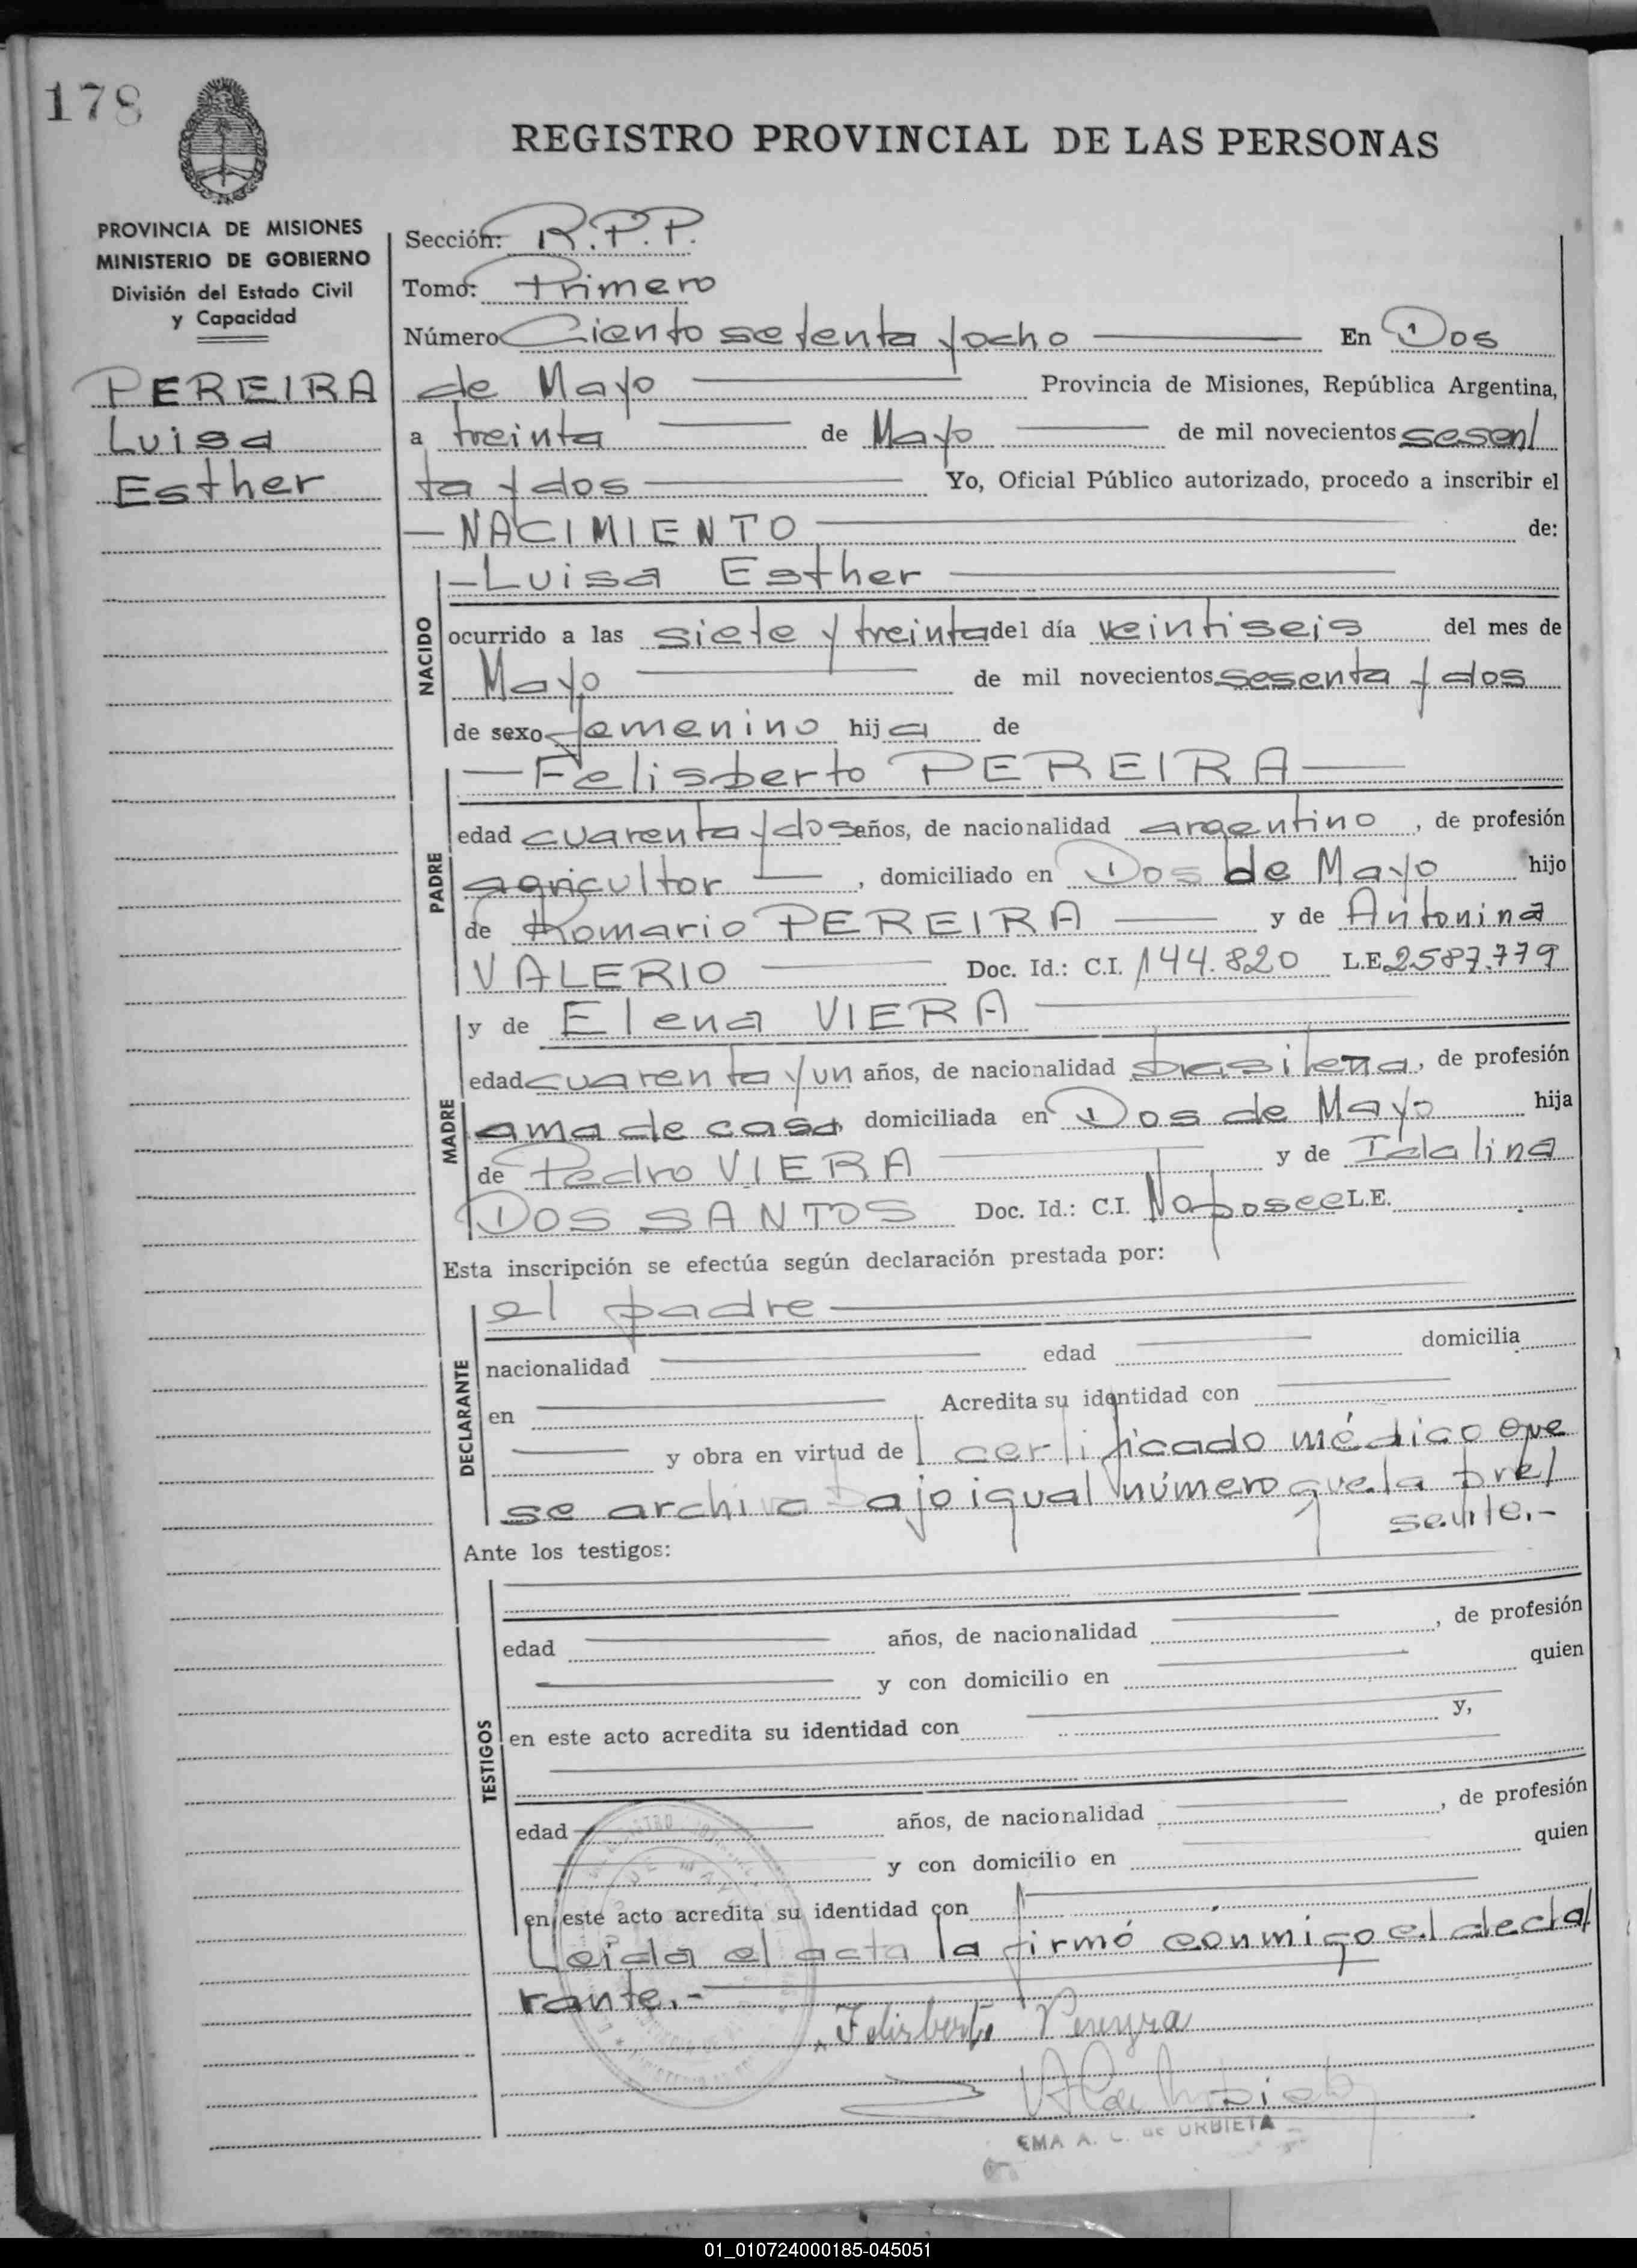 178
REGISTRO PROVINCIAL DE LAS PERSONAS
PROVINCIA DE MISIONES
MINISTERIO DE GOBIERNO
División del Estado Civil
y Capacidad
PEREIRA
Luisa
Esther
Sección: R.P.P.
Tomo: Primero
Número Ciento setenta y ocho En Dos
de Mayo Provincia de Misiones, República Argentina,
a treinta de Mayo de mil novecientos sesen/
ta y dos Yo, Oficial Público autorizado, procedo a inscribir el
— NACIMIENTO de:
NACIDO
— Luisa Esther
ocurrido a las siete y treinta del día veintiseis del mes de
Mayo de mil novecientos sesenta y dos
de sexo femenino hija de
PADRE
— Felisberto PEREIRA —
edad cuarenta y dos años, de nacionalidad argentino, de profesión
agricultor —, domiciliado en Dos de Mayo hijo
de Romario PEREIRA — y de Antonina
VALERIO — Doc. Id.: C.I. 144.820 L.E. 2587.779
MADRE
y de Elena VIERA
edad cuarenta y un años, de nacionalidad brasileña, de profesión
ama de casa, domiciliada en Dos de Mayo hija
de Pedro VIERA y de Idalina
DOS SANTOS Doc. Id.: C.I. No posee L.E.
Esta inscripción se efectúa según declaración prestada por:
DECLARANTE
el padre
nacionalidad edad domicilia
en Acredita su identidad con
y obra en virtud de certificado médico que
se archiva bajo igual número que la pre/
sente.-
Ante los testigos:
TESTIGOS
edad años, de nacionalidad , de profesión
y con domicilio en quien
en este acto acredita su identidad con y,
edad años, de nacionalidad , de profesión
y con domicilio en quien
en este acto acredita su identidad con
Leida el acta la firmó conmigo el decla/
rante.-
Felisberto Pereyra
EMA A. C. de URBIETA
01_010724000185-045051